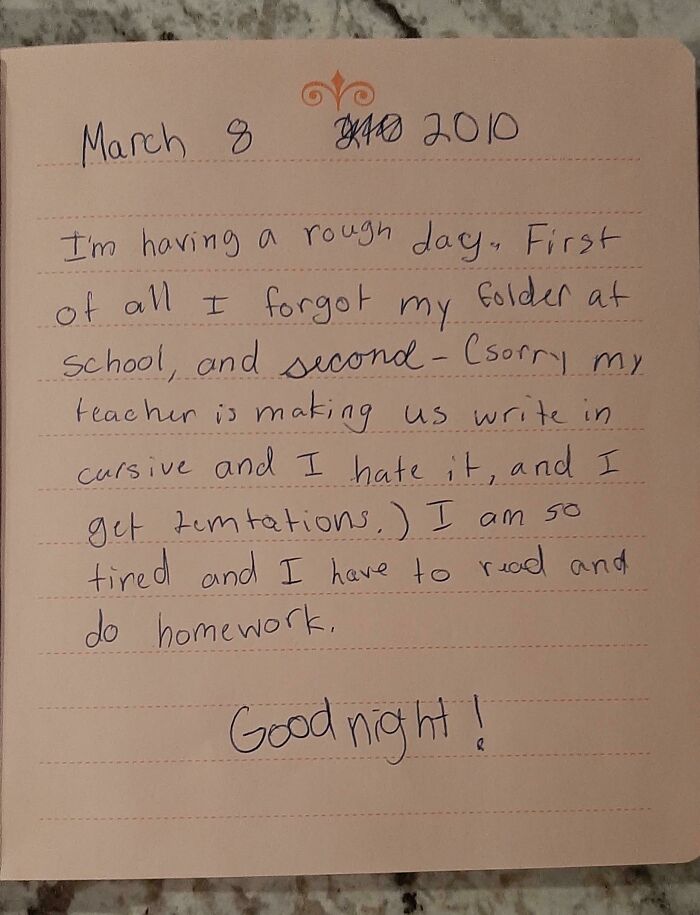 March 8 2010
I'm having a rough day. First
of all I forgot my folder at
school, and second - (sorry my
teacher is making us write in
cursive and I hate it, and I
get temtations.) I am so
tired and I have to read and
do homework.
Good night!